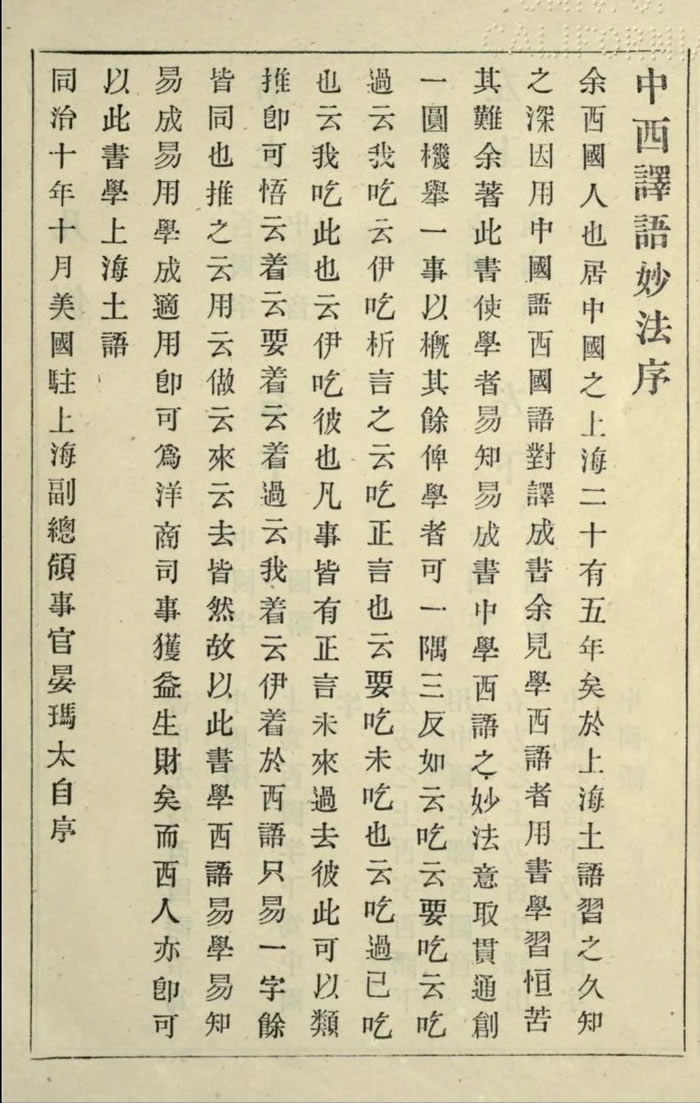 CALIFORNIA
中西譯語妙法序
余西國人也居中國之上海二十有五年矣於上海土語習之久知
之深因用中國語西國語對譯成書余見學西語者用書學習恒苦
其難余著此書使學者易知易成書中學西語之妙法意取貫通創
一圓機舉一事以概其餘俾學者可一隅三反如云吃云要吃云吃
過云我吃云伊吃析言之云吃正言也云要吃未吃也云吃過已吃
也云我吃此也云伊吃彼也凡事皆有正言未來過去彼此可以類
推卽可悟云着云要着云着過云我着云伊着於西語只易一字餘
皆同也推之云用云做云來云去皆然故以此書學西語易學易知
易成易用學成適用卽可爲洋商司事獲益生財矣而西人亦卽可
以此書學上海土語
同治十年十月美國駐上海副總領事官晏瑪太自序